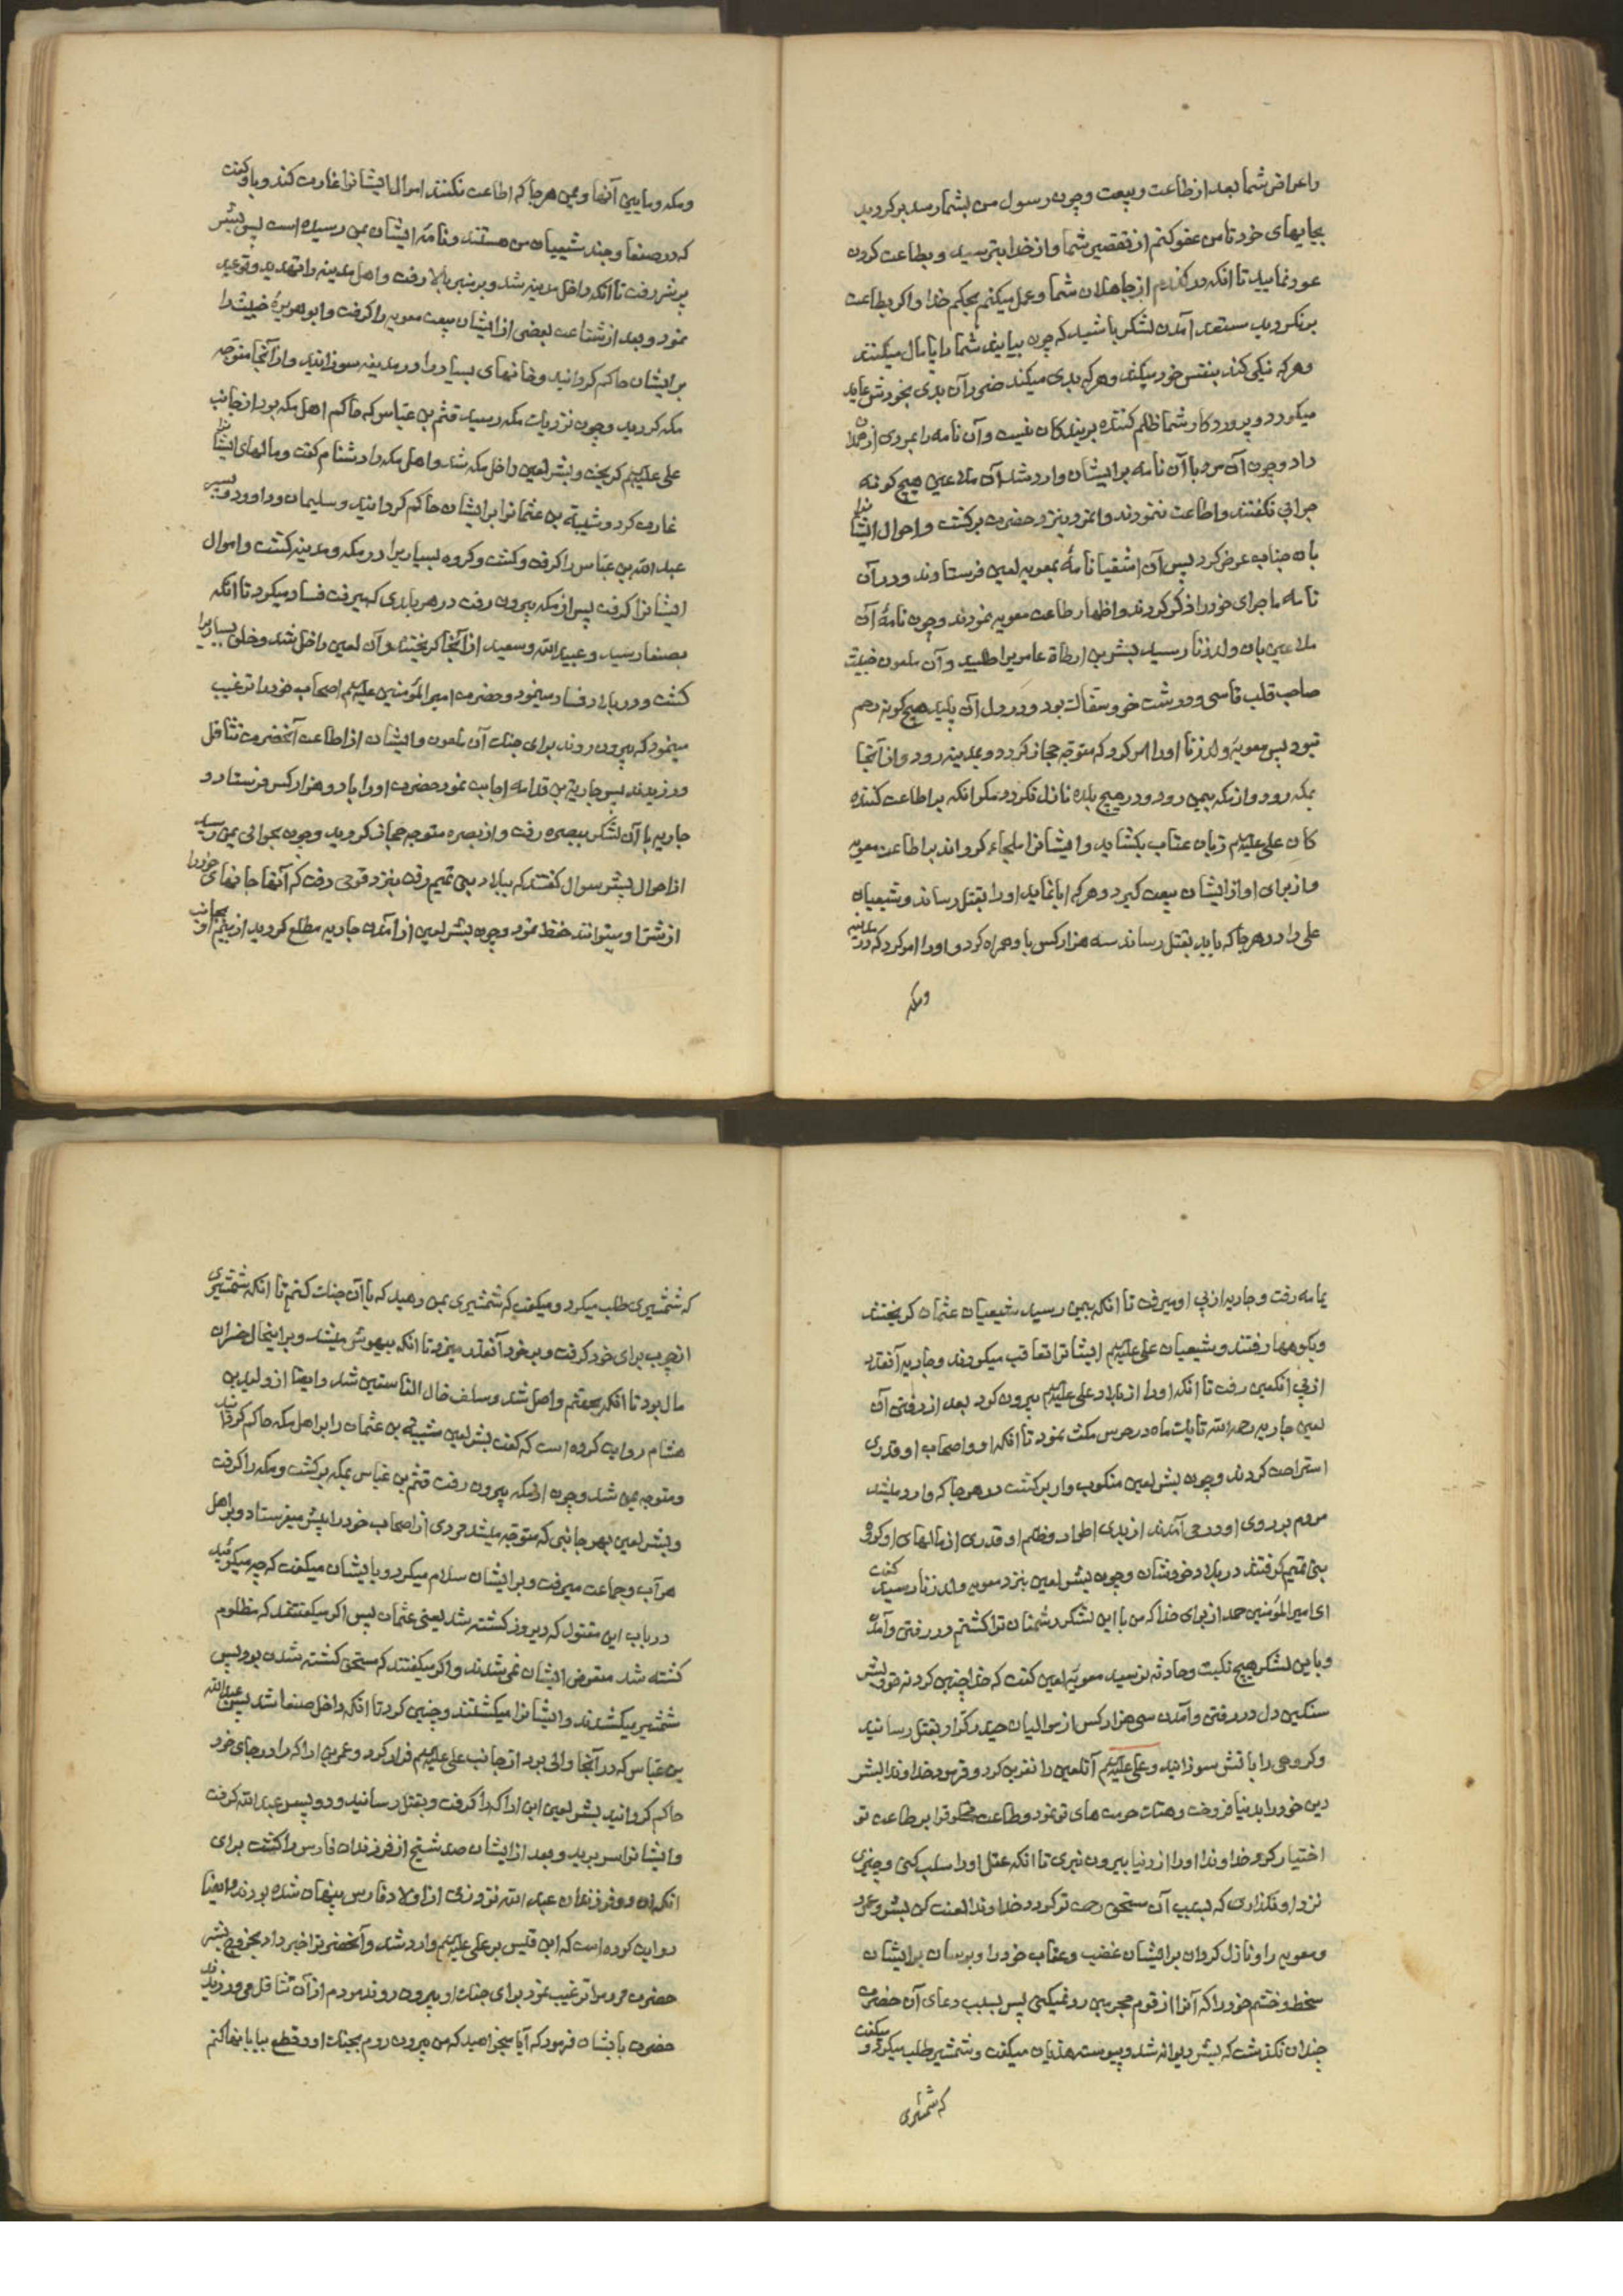 و اعراض شما بعد از طاعت و بیعت و چون رسول من بشما رسد برکردید
بجایهای خود تا من عفو کنم از تقصیر شما و از خدا بترسید و بطاعت کردن
عود نمایید تا انکه درکذرم از جاهلان شما و عمل میکنم بحکم خدا و اکر بطاعت
برنکردید مستعد آمدن لشکر باشید که چون بیایند شما را پامال میکنند
و هرکه نیکی کند بنفس خود میکند و هرکه بدی میکند ضرر آن بدی بخودش عاید
میکردد و پروردکار شما ظلم کننده بر بندکان نیست و آن نامه را بمردی از همدان
داد و چون آن مرد با آن نامه بر ایشان وارد شد آن ملاعین هیچ کونه
جوابی نکفتند و اطاعت ننمودند و انمرد بنزد حضرت برکشت و احوال ایشانرا
بان جناب عرض کرد پس آن اشقیا نامهٔ بمعویه لعین فرستادند و در آن
نامه ماجرای خود را ذکر کردند و اظهار طاعت معویه نمودند و چون نامهٔ آن
ملاعین بان ولد زنا رسید بشر بن ارطاة عامریرا طلبید و آن ملعون خبیث
صاحب قلب قاسی و درشت خو و سفاک بود و در دل آن پلید هیچ کونه رحم
نبود پس معویه ولد زنا او را امر کرد که متوجه حجاز کردد و بمدینه رود و از آنجا
بمکه رود و از مکه بیمن رود و در هیچ بلده نازل نکردد مکر انکه بر اطاعت کننده
کان علی علیهم زبان عتاب بکشاید و ایشانرا ملجاء کرداند بر اطاعت معویه
و از برای او از ایشان بیعت کیرد و هرکه ابا نماید او را بقتل رساند و شیعیان
علی را در هرجا که یابد بقتل رساند سه هزار کس باو همراه کرد و او را امر کرد که در مدینه
و مکه
و مکه و مابین آنها و یمن هرجا که اطاعت نکنند اموال ایشانرا غارت کند و باو کفت
که در صنعا و جند شیعیان من هستند و نامهٔ ایشان بمن رسیده است پس بشر
بر شر رفت تا انکه داخل مدینه شد و بر منبر بالا رفت و اهل مدینه را تهدید و توعید
نمود و بعد از شفاعت بعضی از ایشان بیعت معویه را کرفت و ابو هریرهٔ خبیث را
بر ایشان حاکم کردانید و خانهای بسیار را در مدینه سوزانید و از آنجا متوجه
مکه کردید و چون نزدیک مکه رسید قثم بن عباس که حاکم اهل مکه بود از جانب
علی علیهم کریخت و بشر لعین داخل مکه شد و اهل مکه را دشنام کفت و مالهای ایشانرا
غارت کرد و شیبة بن عثمانرا بر ایشان حاکم کردانید و سلیمان و داوود و پسر
عبدالله بن عباس را کرفت و کشت و کروه بسیاریرا در مکه و مدینه کشت و اموال
ایشانرا کرفت پس از مکه بیرون رفت در هر بلدی که میرفت فساد میکرد تا انکه
بصنعا رسید و عبیدالله و سعید از آنجا کریختند و آن لعین داخل شد و خلق بسیاریرا
کشت و در بلاد فساد مینمود و حضرت امیر المؤمنین علیهم اصحاب خود را ترغیب
مینمود که بیرون روند برای جنک آن ملعون و ایشان از اطاعت آنحضرت تثاقل
ورزیدند پس جاریة بن قدامه اجابت نمود حضرت او را با دو هزار کس فرستاد و
جاریه با آن لشکر ببصره رفت و از بصره متوجه حجاز کردید و چون بحوالی یمن رسید
از احوال بشر سوال کفتند که ببلاد بنی تمیم رفت بنزد قومی رفت که آنها جانهای خود را
از شر او میتوانند حفظ نمود و چون بشر لعین از آمدن جاریه مطلع کردید از بیم او بجانب
یمامه رفت و جاریه از پی او میرفت تا انکه بیمن رسید شیعیان عثمان کریختند
و بکوهها رفتند و شیعیان علی علیهم ایشانرا تعاقب میکردند و جاریه آنقدر
از پی انلعین رفت تا انکه او را از بلاد علی علیهم بیرون کرد بعد از رفتن آن
لعین جاریه رحمه الله تا یک ماه در حرس مکث نمود تا انکه او و اصحاب او قدری
استراحت کردند و چون بشر لعین منکوب وار برکشت در هرجا که وارد میشد
مردم بر روی او در می آمدند از بدی اطوار و ظلم او و قدری از مالهای او کروه
بنی تمیم کرفتند در بلاد خودشان و چون بشر لعین بنزد معویه ولد زنا رسید کفت
ای امیر المؤمنین حمد از برای خدا که من با این لشکر دشمنان ترا کشتم در رفتن و آمدن
و باین لشکر هیچ نکبت و حادثه نرسید معویهٔ لعین کفت که خدا چنین کرد نه تو و بشر
سنکین دل در رفتن و آمدن سی هزار کس از موالیان حیدر کرّار بقتل رسانید
و کروهی را باتش سوزانید و علی علیهم آنلعین را نفرین کرد و فرمود خداوندا بشر
دین خود را بدنیا فروخت و هتک حرمت های تو نمود و طاعت مخلوقرا بر طاعت تو
اختیار کرد خداوندا او را از دنیا بیرون نبری تا انکه عقل او را سلب کنی و چیزی
نزد او نکذاری که بسبب آن مستحق رحمت تو کردد خداوندا لعنت کن بشر و عمرو
و معویه را و نازل کردان بر ایشان غضب و عتاب خود را و برسان بر ایشان
سخط و خشم خود را که آنرا از قوم مجرمین رد نمیکنی پس بسبب دعای آن حضرت
چندان نکذشت که بشر دیوانه شد و پیوسته هذیان میکفت و شمشیر طلب میکرد و میکفت
که شمشیری
که شمشیری طلب میکرد و میکفت که شمشیری بمن دهید که با آن جنک کنم تا انکه شمشیری
از چوب برای خود کرفت و بر خود آنقدر میزد تا انکه بیهوش میشد و بر اینحال خسران
مال بود تا انکه بجهنم واصل شد و سلف ضال الناسئین شد و ایضا از ولید بن
هشام روایت کرده است که کفت بشر لعین شیبة بن عثمان را بر اهل مکه حاکم کردانید
و متوجه یمن شد و چون از مکه بیرون رفت قثم بن عباس بمکه برکشت و مکه را کرفت
و بشر لعین بهر جانبی که متوجه میشد مردی از اصحاب خود را پیش میفرستاد و بر اهل
هر آب و جماعت میرفت و بر ایشان سلام میکرد و بایشان میکفت که چه میکوئید
در باب این مقتول که دیروز کشته شد یعنی عثمان پس اکر میکفتند که مظلوم
کشته شد متعرض ایشان نمی شدند و اکر میکفتند که مستحق کشته شدن بود پس
شمشیر میکشیدند و ایشانرا میکشتند و چنین کرد تا انکه داخل صنعا شد پس عبیدالله
بن عباس که در آنجا والی بود از جانب علی علیهم فرار کرد و عمر بن اراکه را در جای خود
حاکم کردانید بشر لعین ابن اراکه را کرفت و بقتل رسانید و دو پسر عبدالله کرفت
و ایشانرا سر برید و بعد از ایشان صد شیخ از فرزندان فارس را کشت برای
انکه آن دو فرزندان عبدالله نزد زنی از اولاد فارس پنهان شده بودند و ایضا
روایت کرده است که ابن قیس بر علی علیهم وارد شد و آنحضرترا خبر داد بخروج بشر
حضرت مردمرا ترغیب نمود برای جنک او بیرون روند مردم از آن تثاقل می ورزیدند
حضرت بایشان فرمود که آیا میخواهید که من بیرون روم بجنک او و قطع بیابانها کنم